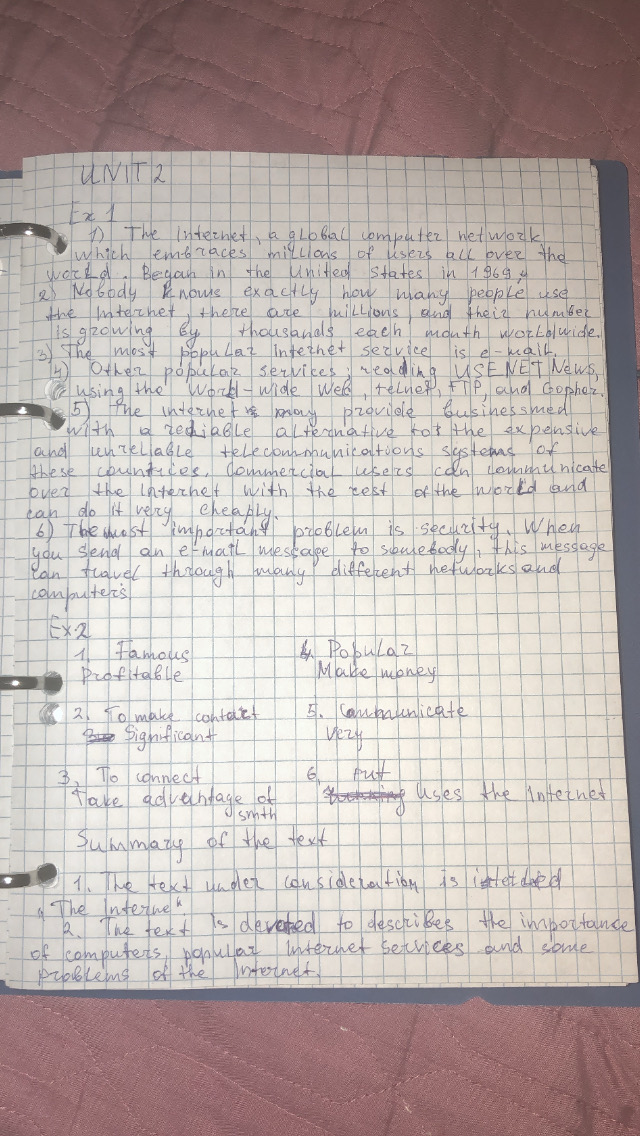 UNIT 2
Ex 1
1) The Internet, a global computer network
which embraces millions of users all over the
world. Began in the United States in 1969.
2) Nobody knows exactly how many people use
the Internet, there are millions, and their number
is growing by thousands each month worldwide.
3) The most popular internet service is e-mail.
4) Other popular services: reading USENET News,
using the World-wide Web, telnet, FTP, and Gopher.
5) The internet may provide businessmed
with a rediable alternative for the expensive
and unreliable telecommunications systems of
these countries. Commercial users can communicate
over the Internet with the rest of the world and
can do it very cheaply.
6) The most important problem is security. When
you send an e-mail message to somebody, this message
can travel through many different networks and
computers
Ex.2
1. Famous
Profitable
4. Popular
Make money
2. To make contact
Significant
5. Communicate
Very
3. To connect
Take advantage of
smth
6. Put
Uses the Internet
Summary of the text
1. The text under consideration is
"The Internet"
2. The text is devoted to describes the importance
of computers, popular Internet services and some
problems of the Internet.